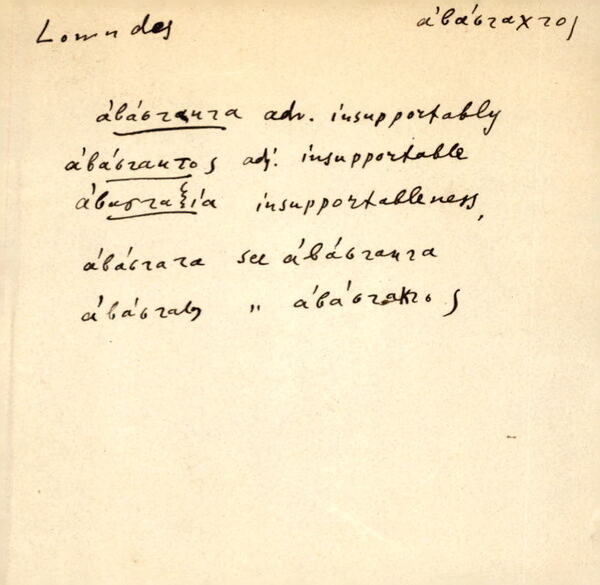 Lowndes ἀβάσταχτος
ἀβάστακτα adv. insupportably
ἀβάστακτος adj. insupportable
ἀβασταξία insupportableness,
ἀβάστατα see ἀβάστακτα
ἀβάστατος " ἀβάστακτος